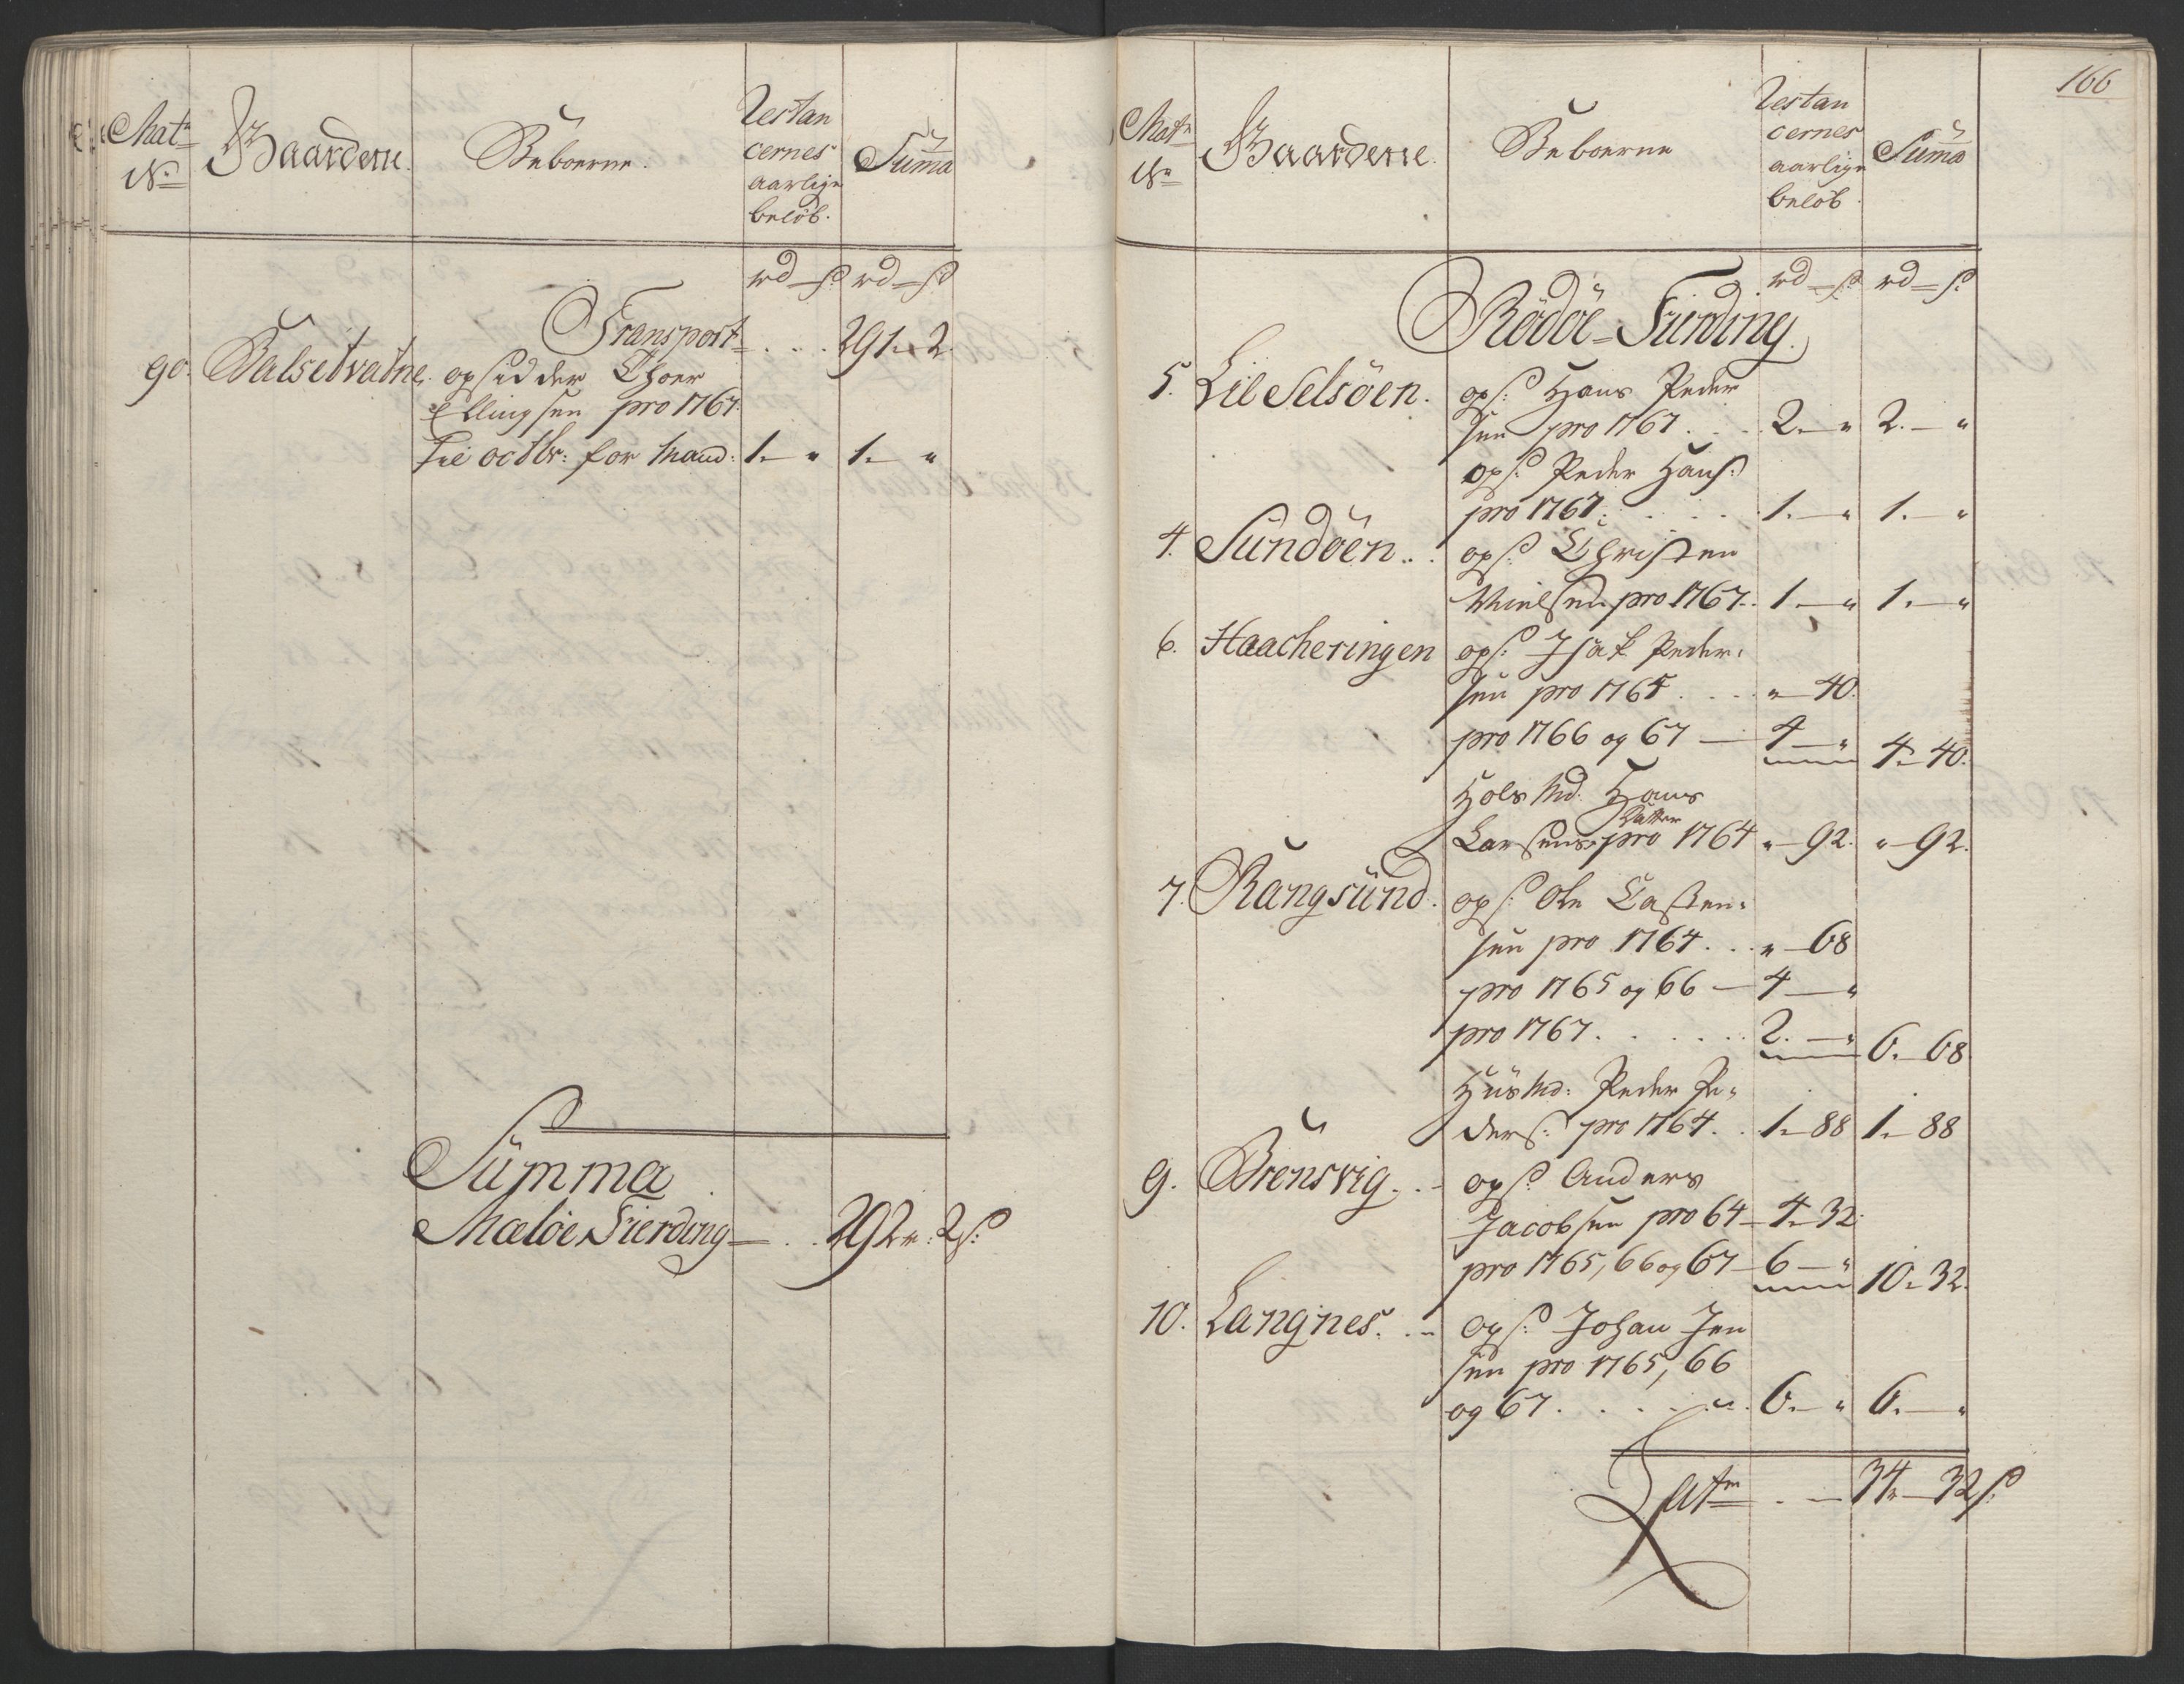 Matr No
Gaardene.
Beboerne.
Restan
cernes
aarlige
beløb.
Suma
rd - s rd - s
Transport . . . 291. 2.
90. Balsetvatne. opsidder Thoer
Ellingsen pro 1767.
til octbr: for Mand: 1. " 1. "
Summa
Meløe Fierding — . . 292 r: 2 s:
166
Matr No
Gaardene.
Beboerne
Restan
cernes
aarlige
beløb.
Suma
rd - s: rd - s:
Rödöe - Fierding.
5. Lil Selsöen. ops: Hans Peder
sen pro 1767 . . . 2. — " 2. — "
ops: Peder Hans:
pro 1767. . . . . 1. — " 1. — "
4. Sundöen . . ops: Christen
Nielsen pro 1767. . 1. — " 1. — "
6. Haacheringen ops: Isak Peder:
sen pro 1765 . . . " — 40.
pro 1766 og 67 — 4 — " 4 — 40.
Hans
Larsens pro 1764 " — 92. " — 92.
7. Rangsund. ops: Ole Casten:
sen pro 1764 . . . " — 68
pro 1765 og 66 — 4 — "
pro 1767 . . . . . . 2. — " 6. — 68
Husmd: Peder Pe:
ders: pro 1764 . . 1 — 88 1. — 88
9. Brensvig. . - ops: Anders
Jacobsen pro 64 — 4 — 32.
pro 1765, 66 og 67 — 6 — " 10. — 32.
10. Langnes. . - ops: Johan Jen
sen pro 1765, 66
og 67 . . . . . . 6. — " 6. — "
Latr . . — 34 — 32 s: